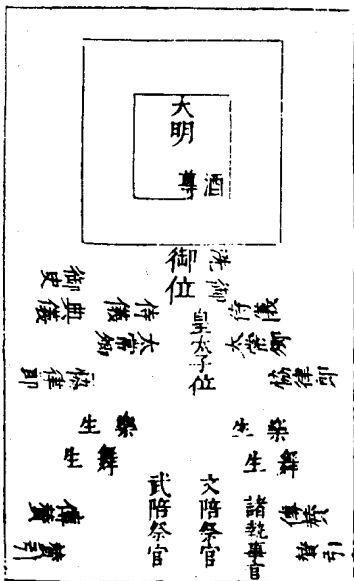 大明
酒尊
御位
御洗
御史
典儀
侍儀
侍儀
皇太子位
太常卿
太常卿
協律郎
協律郎
樂生
樂生
舞生
舞生
武陪祭官
文陪祭官
諸執事官
傳贊
傳贊
贊引
贊引